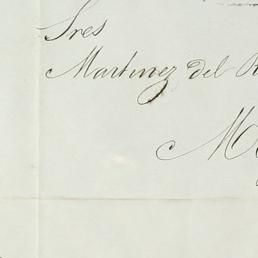 Sres
Martinez del R
M